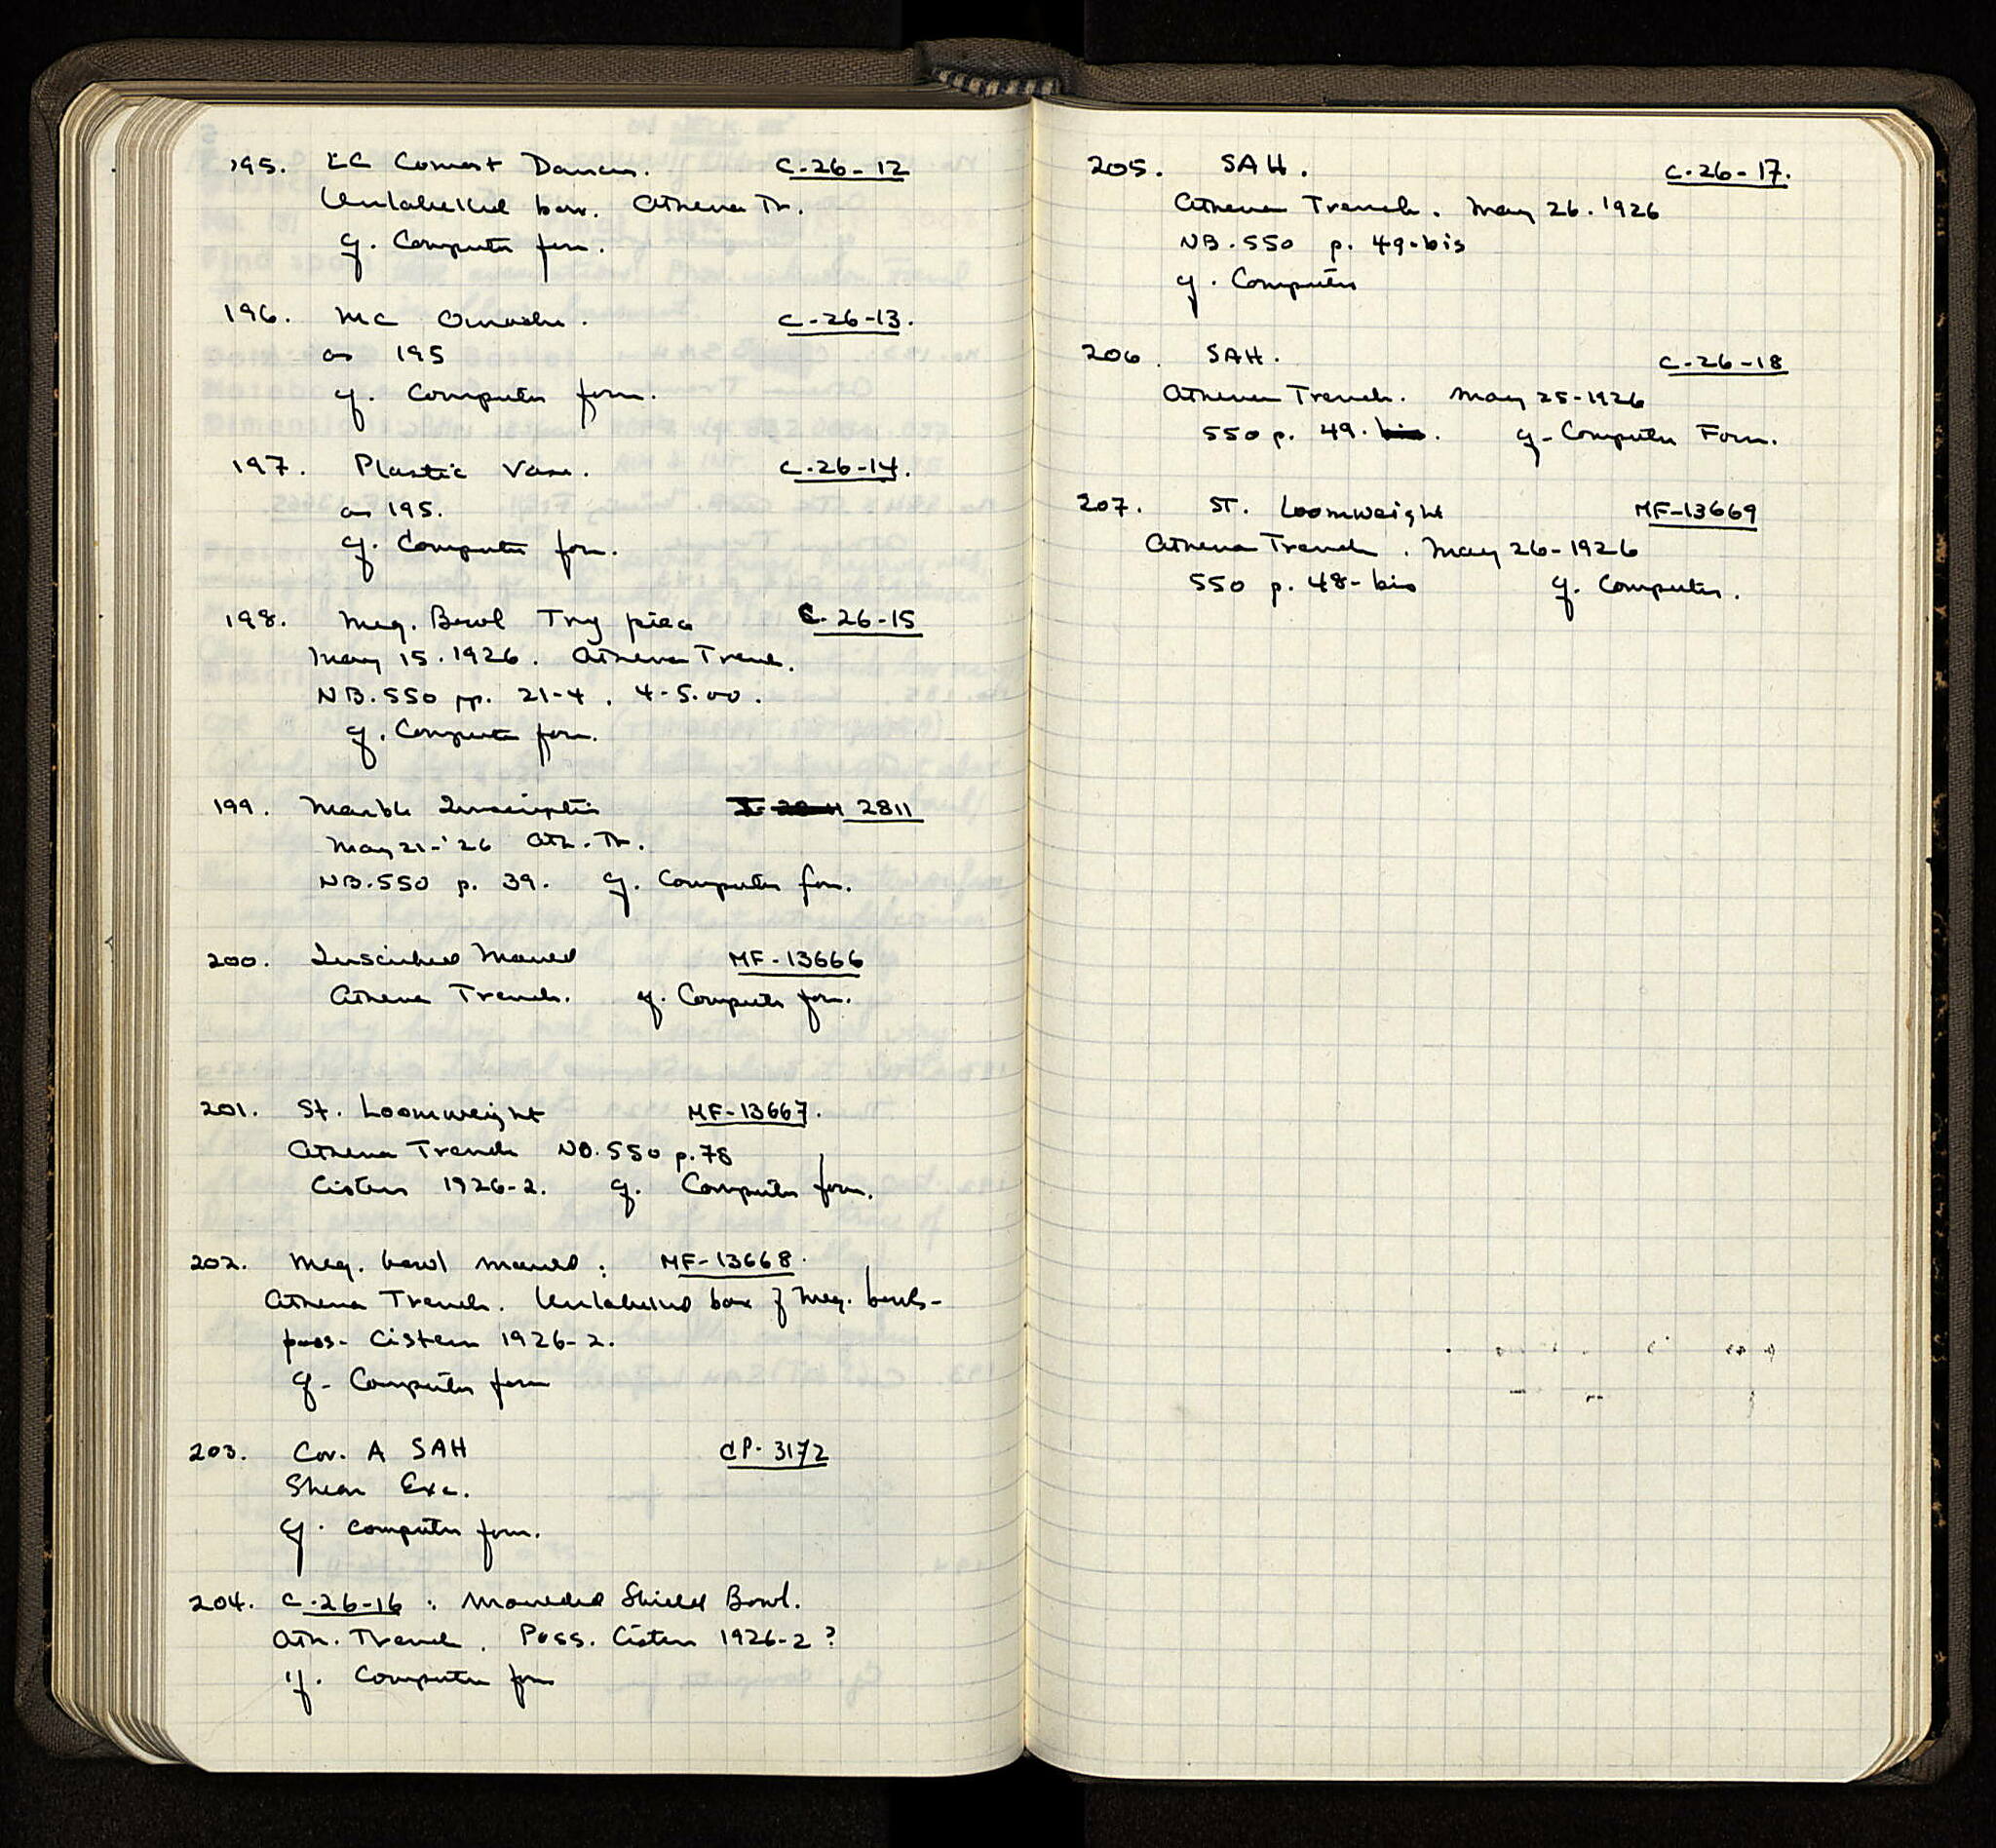 195. EC Comast Dancers. C-26-12
Unlabelled box. Athena Tr.
cf. Computer form.
196. MC Oinochoe. C-26-13.
as 195
cf. Computer form.
197. Plastic Vase. C-26-14.
as 195.
cf. Computer form.
198. Meg. Bowl Try piece C-26-15
May 15.1926. Athena Trench.
NB.550 pp. 21-4, 4-5.00.
cf. Computer form.
199. Marble Inscription 2811
May 21-'26 Ath. Tr.
NB.550 p. 39. cf. Computer form.
200. Inscribed Mould MF-13666
Athena Trench. cf. Computer form.
201. St. Loomweight MF-13667.
Athena Trench NB.550 p.78
Cistern 1926-2. cf. Computer form.
202. Meg. bowl mould: MF-13668.
Athena Trench. Unlabelled box of Meg. bowls-
poss- Cistern 1926-2.
cf- Computer form
203. Cor. A SAH CP-3172
Shear Exc.
cf. Computer form.
204. C-26-16: Moulded Shield Bowl.
Ath. Trench. Poss. Cistern 1926-2?
cf. Computer form
205. SAH. C-26-17.
Athena Trench. May 26.1926
NB.550 p. 49-bis
cf. Computer
206. SAH. C-26-18
Athena Trench. May 25-1926
550 p. 49. bis. cf- Computer Form.
207. ST. Loomweight MF-13669
Athena Trench. May 26-1926
550 p. 48-bis cf. Computer.